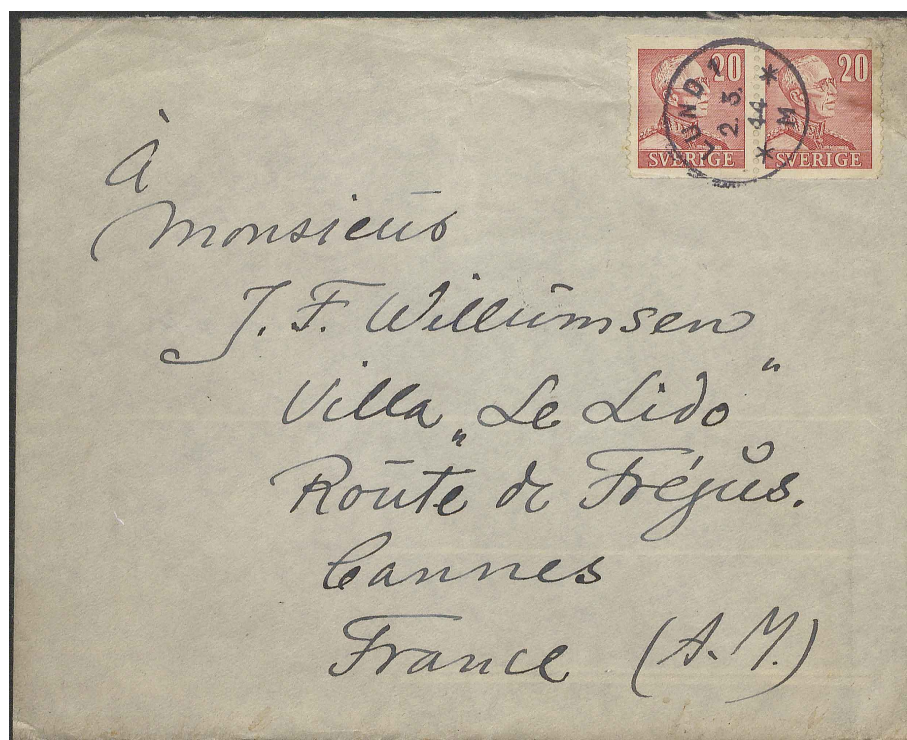 20 20
SVERIGE SVERIGE
LUND 1
2. 3.
44
* M *
À
Monsieur
J. F. Willumsen
Villa „Le Lido"
Route de Fréjus.
Cannes
France (A.M.)